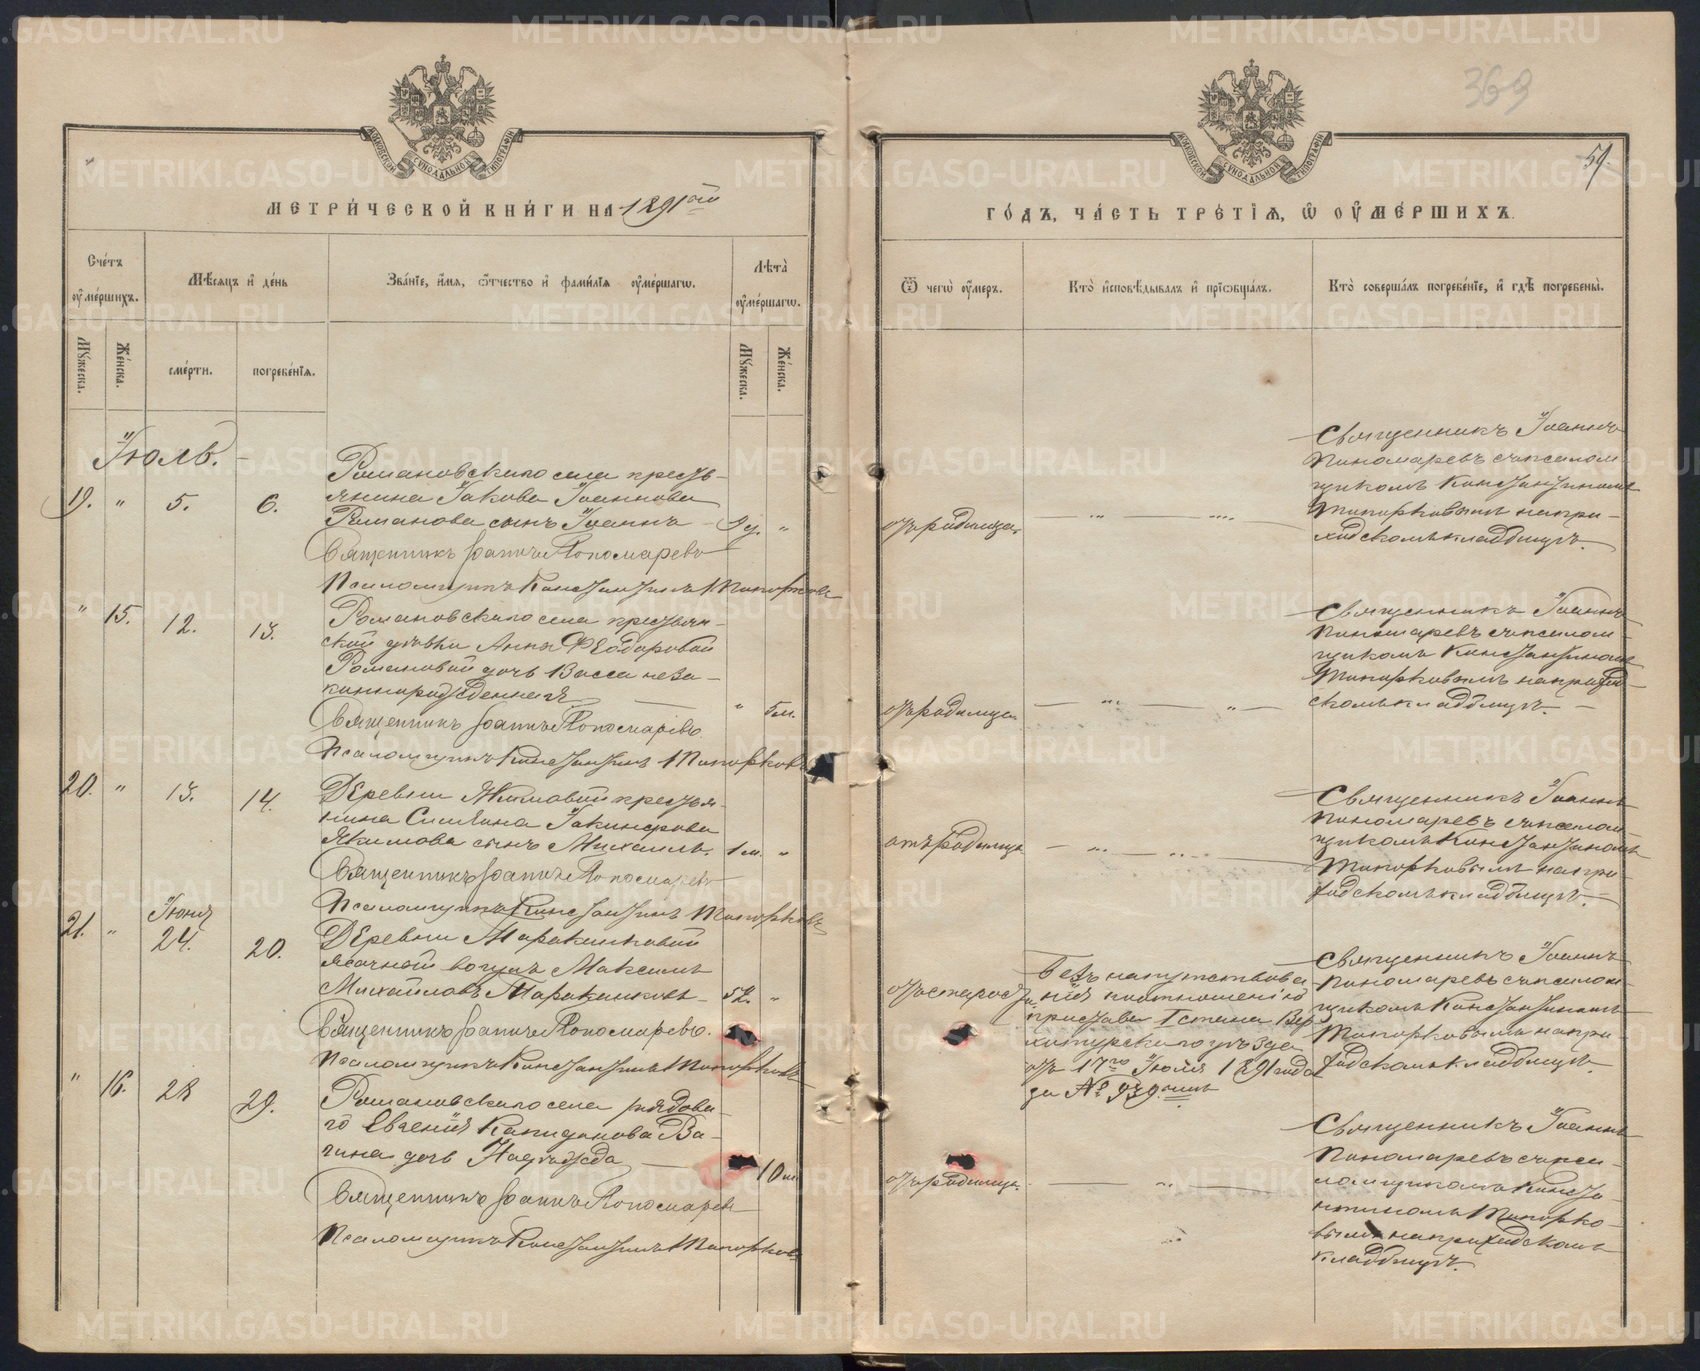 369
51.
МЕТРИ́ЧЕСКОЙ КНИ́ГИ НА 1891ый
ГО́ДЪ, ЧА́СТЬ ТРЕ́ТІѦ, Ѡ ОУ҆МЕ́РШИХЪ.
Сче́тъ оу҆ме́ршихъ.
Мѣ́сяцъ и҆ де́нь
Зва́ніе, и҆́мя, ѻ҆́тчество и҆ фами́лія оу҆ме́ршагѡ.
Лѣта̀ оу҆ме́ршагѡ.
Му́жеска.
Же́нска.
сме́рти.
погребе́нія.
Му́жеска.
Же́нска.
Ѿ чегѡ̀ оу҆́меръ.
Кто̀ и҆сповѣ́дывалъ и҆ прїѻбща́лъ.
Кто̀ соверша́лъ погребе́ніе, и҆ гдѣ̀ погребены̀.
Іюль.
19. " 5. 6.
Романовскаго села кресть-
янина Іакова Іоаннова
Романова сынъ Іоаннъ
"
Священникъ Іоаннъ Пономаревъ
Псаломщикъ Константинъ Топорковъ
отъ родимца.
Священникъ Іоаннъ
Пономаревъ съ псалом-
щикомъ Константиномъ
Топорковымъ на при-
ходскомъ кладбищѣ.
" 15. 12. 13.
Романовскаго села крестьян-
ской дѣвки Анны Ѳеодоровой
Романовой дочь Васса неза-
коннорожденная
" 5 м.
Священникъ Іоаннъ Пономаревъ.
Псаломщикъ Константинъ Топорковъ
отъ родимца.
Священникъ Іоаннъ
Пономаревъ съ псалом-
щикомъ Константиномъ
Топорковымъ на приход-
скомъ кладбищѣ.
20. " 13. 14.
Деревни Якимовой крестья-
нина Симеона Іакинфова
Якимова сынъ Михаилъ.
1 м. "
Священникъ Іоаннъ Пономаревъ
Псаломщикъ Константинъ Топорковъ
отъ родимца
Священникъ Іоаннъ
Пономаревъ съ псалом-
щикомъ Константиномъ
Топорковымъ на при-
ходскомъ кладбищѣ.
21. " Іюня 24. 20.
Деревни Тараканковой
ясачный вогулъ Максимъ
Михайловъ Тараканковъ
"
Священникъ Іоаннъ Пономаревъ.
Псаломщикъ Константинъ Топорковъ
отъ старости
Безъ напутствова-
нія по отношенію
пристава 1 стана Вер-
хотурскаго уѣзда
отъ 17го Іюля 1891 года
за № 939.
Священникъ Іоаннъ
Пономаревъ съ псалом-
щикомъ Константиномъ
Топорковымъ на при-
ходскомъ кладбищѣ.
" 16. 28 29.
Романовскаго села рядова-
го Евгенія Капидонова Ва-
гина дочь Надежда
10 м.
Священникъ Іоаннъ Пономаревъ
Псаломщикъ Константинъ Топорковъ
отъ родимца.
Священникъ Іоаннъ
Пономаревъ съ пса-
ломщикомъ Конста-
нтиномъ Топорко-
вымъ на приходскомъ
кладбищѣ.
METRIKI.GASO-URAL.RU